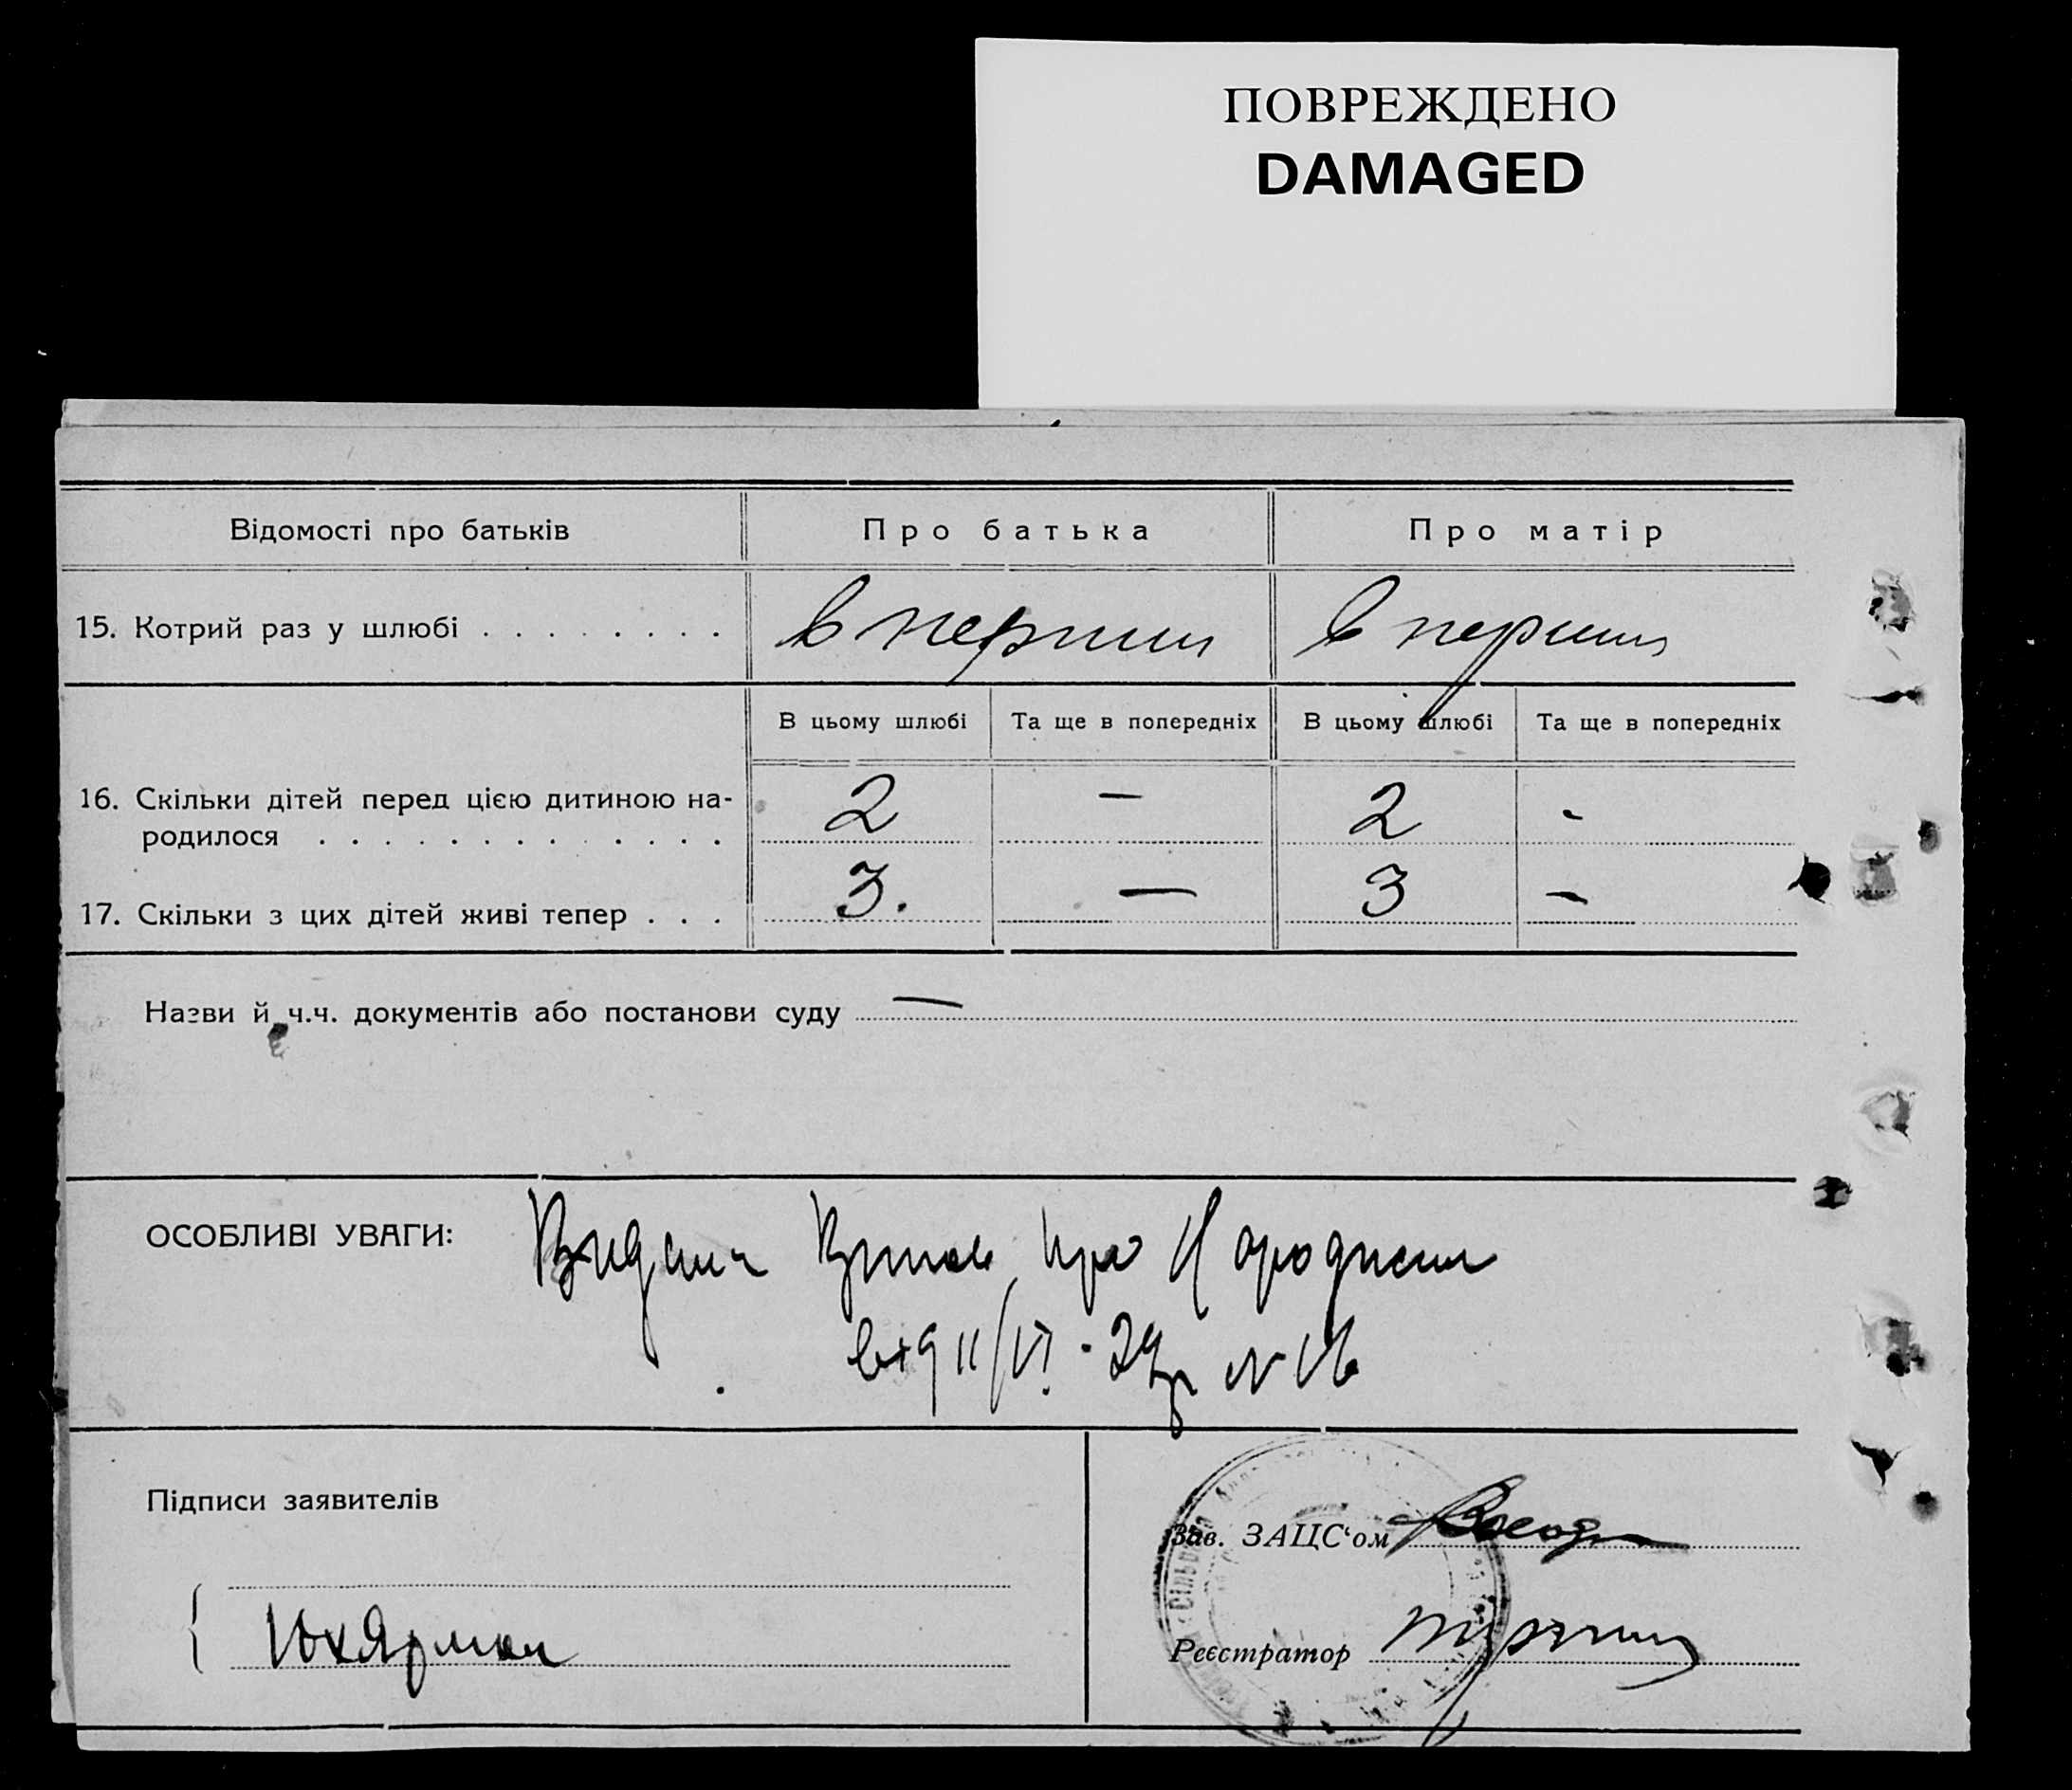 ПОВРЕЖДЕНО
DAMAGED
Відомості про батьків
Про батька
Про матір
15. Котрий раз у шлюбі . . . . . . . .
в перший
в перший
В цьому шлюбі
Та ще в попередніх
В цьому шлюбі
Та ще в попередніх
16. Скільки дітей перед цією дитиною на-
родилося . . . . . . . . . . . . .
2
—
2
-
17. Скільки з цих дітей живі тепер . . .
3.
—
3
-
Назви й ч.ч. документів або постанови суду —
ОСОБЛИВІ УВАГИ:
Видана про
від 11/VI - 29р N 16
Підписи заявителів
Зав. ЗАЦС‘ом
Реєстратор